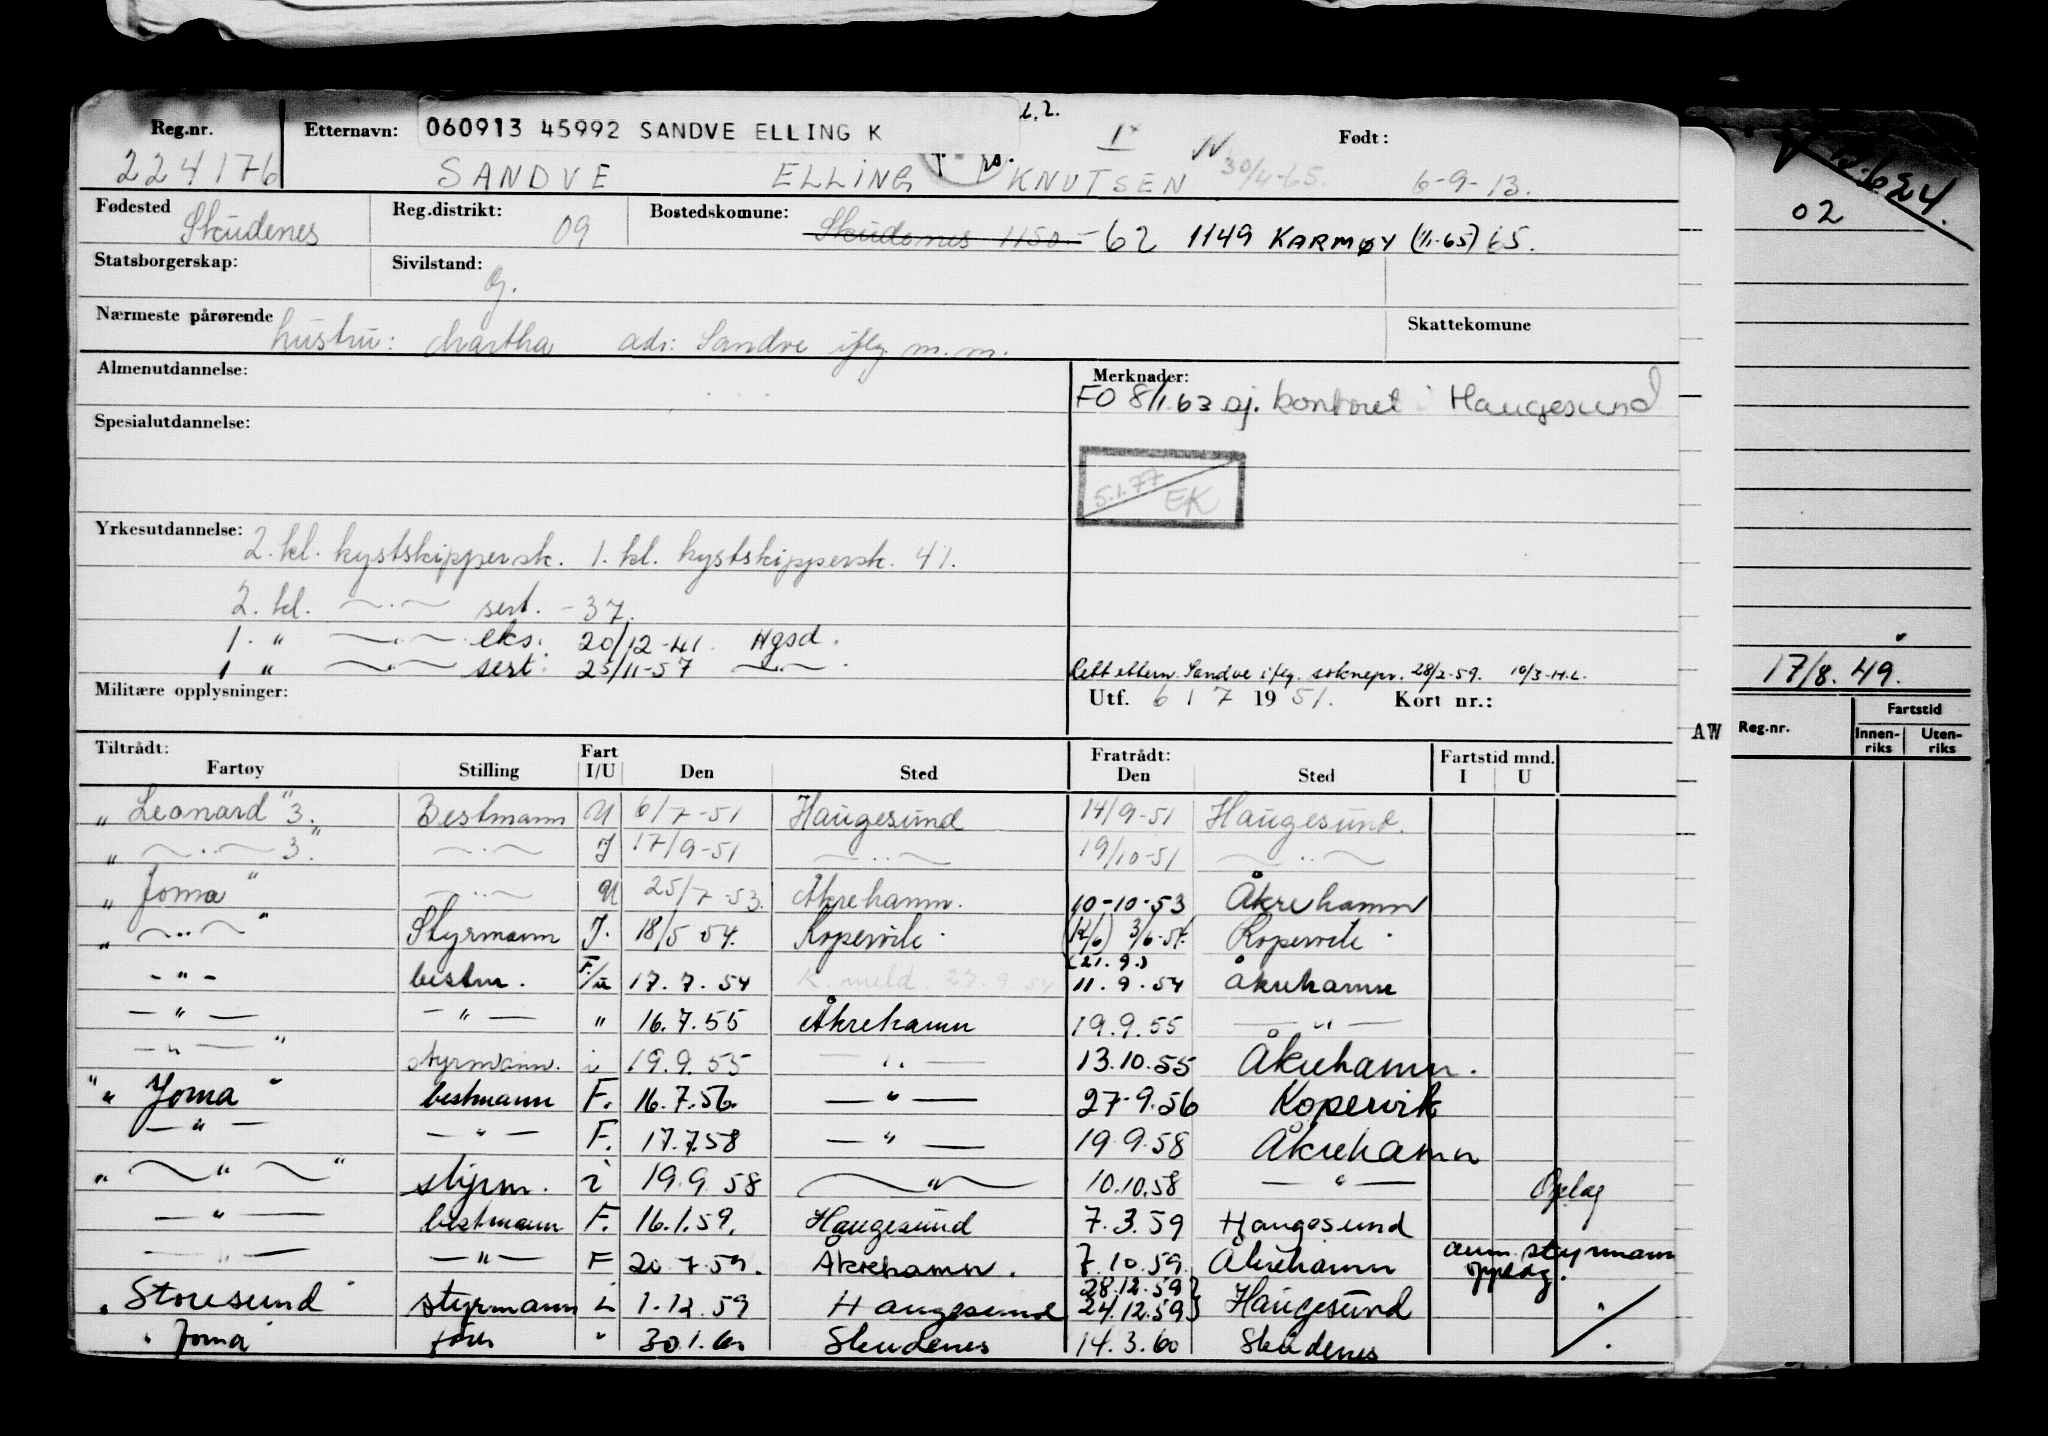 Reg.nr. Etternavn: 060913 45992 SANDVE ELLING K Født:
224176 SANDVE ELLING KNUTSEN 30/4-65. 6-9-13.
Fødested Skudenes Reg.distrikt: 09 Bostedskomune: Skudenes 1150 -62 1149 KARMØY (1/1-65) 65.
Statsborgerskap: Sivilstand: g.
Nærmeste pårørende hustru: Martha adr: Sandve iflg. m.m. Skattekomune
Almenutdannelse: Merknader:
FO 8/1.63 sj. kontoret i Haugesund
Spesialutdannelse:
5.1.77 EK
Yrkesutdannelse:
2. kl. kystskippersk. 1. kl. kystskippersk. 41.
2. kl. —..— sert. -37.
1. " —..— eks. 20/12-41. Hgsd.
1 " —..— sert. 25/11-57 —..—
Rett ettern. Sandve iflg. soknepr. 28/2-59. 10/3-H.L.
Militære opplysninger: Utf. 6 / 7 1951. Kort nr.:
Tiltrådt: Fart Fratrådt: Fartstid mnd.
Fartøy Stilling I/U Den Sted Den Sted I U
" Leonard" 3. Bestmann U 6/7-51 Haugesund 14/9-51 Haugesund.
" —..— 3." —..— I 17/9-51 —..— 19/10-51 —..—
" Joma" —..— U 25/7-53. Åkrehamn. 10-10-53 Åkrehamn
" —..—" Styrmann I. 18/5 54. Kopervik. 3/6-54. Kopervik.
(21.9.)
- " - bestm. F./u 17.7.54 K. meld. 27.9.54 11.9.54 Åkrehamn
— " — — " — " 16.7.55 Åkrehamn 19.9.55 — " —
— " — " styrmann. i 19.9.55 — " — 13.10.55 Åkrehamn.
" Joma" bestmann F. 16.7.56. — " — 27.9.56 Kopervik
— " — — " — F. 17.7.58 — " — 19.9.58 Åkrehamn
" — " —" styrm. i 19.9.58 — " — 10.10.58 — " — Oplag
— " — bestmann F. 16.1.59. Haugesund 7.3.59 Haugesund
— " — — " — F 20.7.59. Åkrehamn. 7.10.59. Åkrehamn anm. styrmann
opplag.
28.12.59}
" Storesund styrmann i 1.12.59 Haugesund 24.12.59} Haugesund
" Joma fører " 30.1.60 Skudenes 14.3.60 Skudenes
02
17/8. 49.
AW Reg.nr. Fartstid
Innen-riks Uten-riks